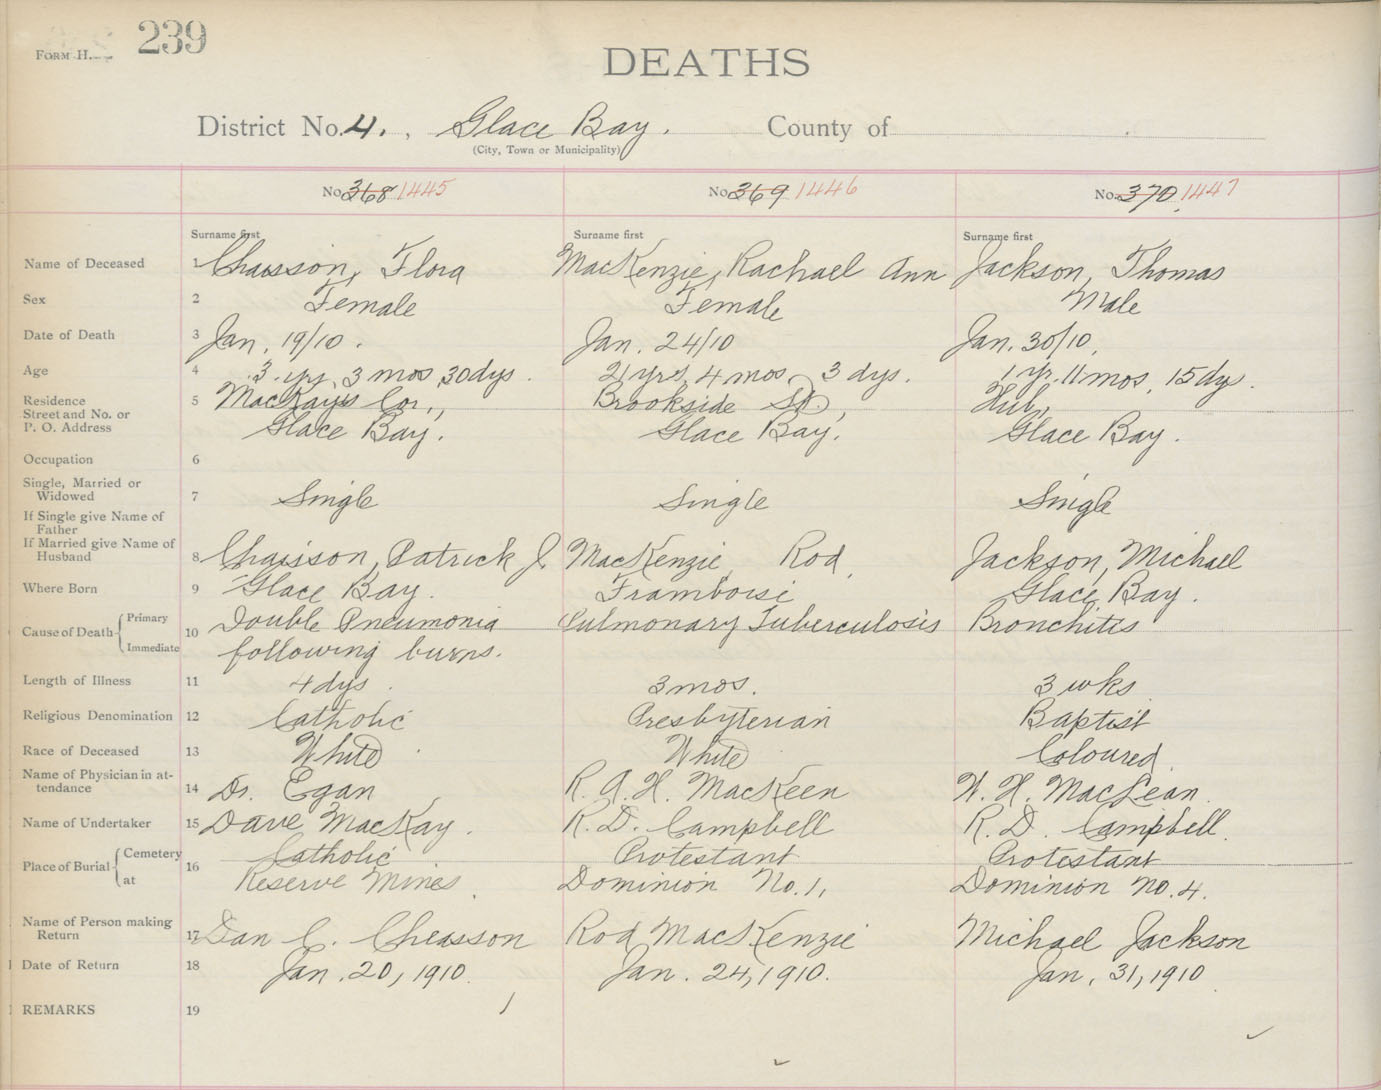 FORM H. 239
DEATHS
District No. 4. , Glace Bay. County of
(City, Town or Municipality)
No. 368 1445 No. 369 1446 No. 370 1447
Surname first Surname first Surname first
Name of Deceased 1 Chaisson, Flora MacKenzie, Rachael Ann Jackson, Thomas
Sex 2 Female Female Male
Date of Death 3 Jan. 19/10. Jan. 24/10 Jan. 30/10.
Age 4 3 yr, 3 mos, 30 dys. 21 yrs, 4 mos, 3 dys. 1 yr. 11 mos, 15 dys.
Residence 5 MacKay's Cor., Brookside St., Hub,
Street and No. or
P. O. Address Glace Bay. Glace Bay. Glace Bay.
Occupation 6
Single, Married or
Widowed 7 Single Single Single
If Single give Name of
Father
If Married give Name of
Husband 8 Chaisson, Patrick J. MacKenzie, Rod, Jackson, Michael
Where Born 9 Glace Bay. Framboise Glace Bay.
Cause of Death Primary 10 Double Pneumonia Pulmonary Tuberculosis Bronchitis
Immediate following burns.
Length of Illness 11 4 dys. 3 mos. 3 wks
Religious Denomination 12 Catholic Presbyterian Baptist
Race of Deceased 13 White White Coloured.
Name of Physician in at-
tendance 14 Dr. Egan R. A. H. MacKeen W. H. MacLean.
Name of Undertaker 15 Dave MacKay. R. D. Campbell R. D. Campbell.
Place of Burial Cemetery 16 Catholic Protestant Protestant
at Reserve Mines. Dominion No. 1, Dominion No. 4.
Name of Person making
Return 17 Dan C. Cheasson Rod MacKenzie Michael Jackson
Date of Return 18 Jan. 20, 1910. Jan. 24, 1910. Jan. 31, 1910
REMARKS 19